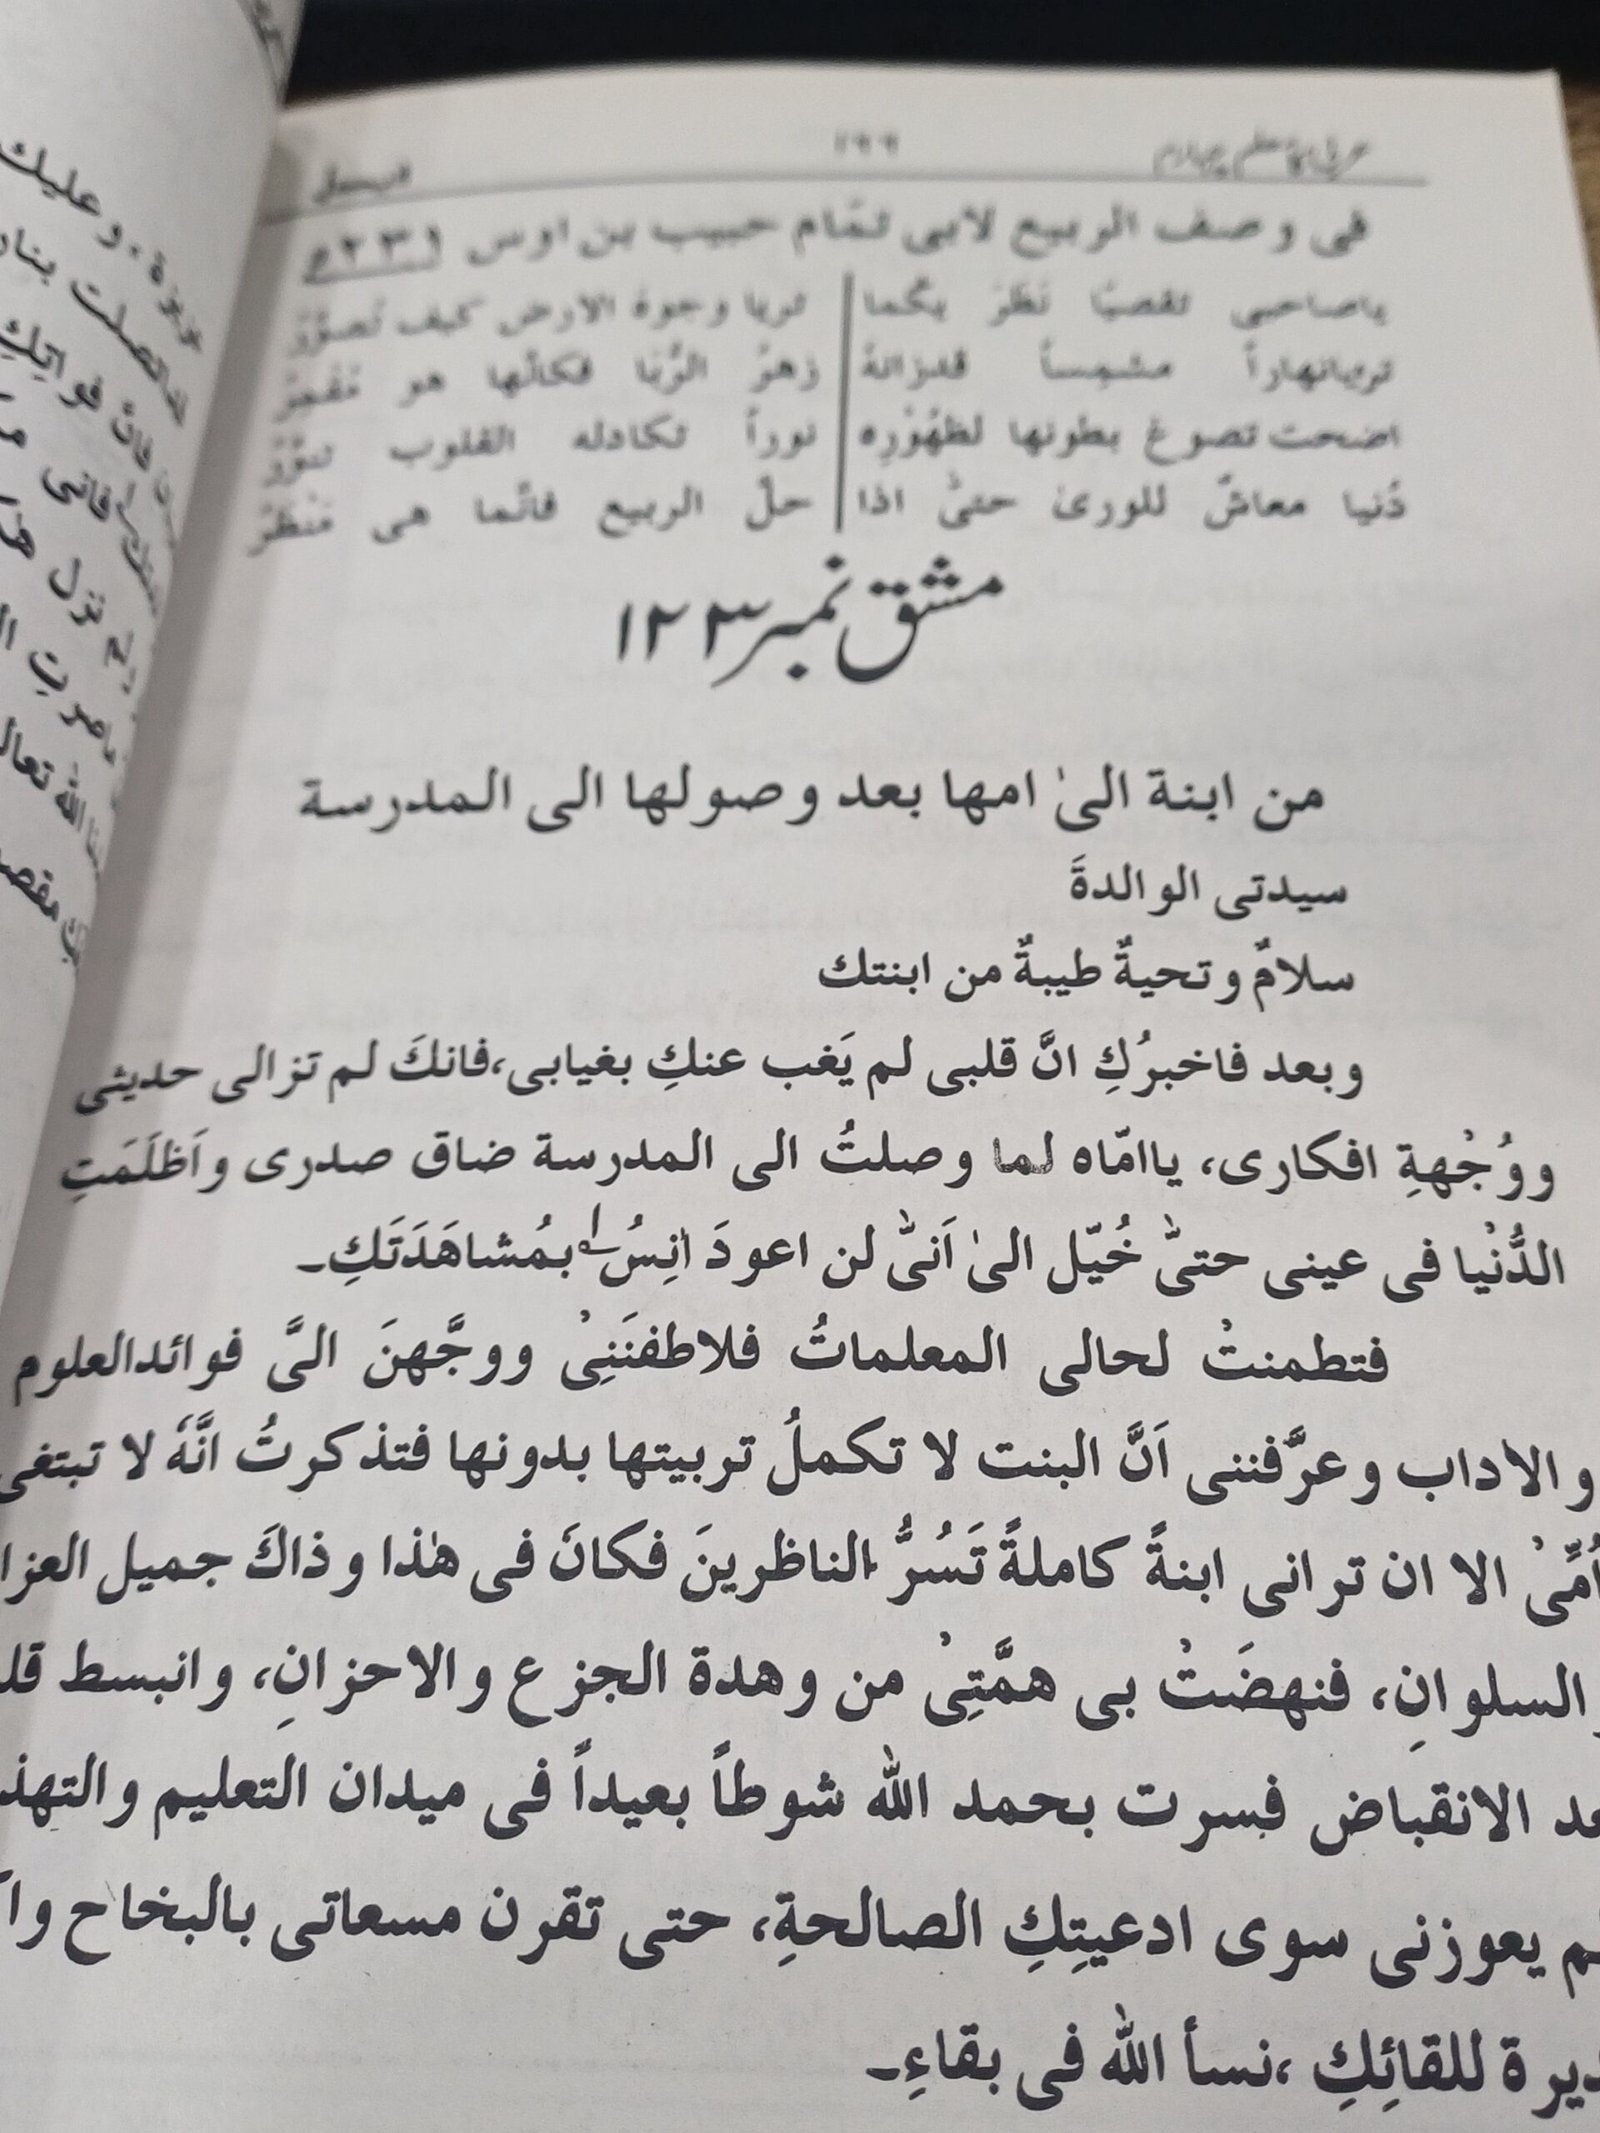 عربی کا معلم چہارم ١٩٩
فی وصف الربیع لابی تمّام حبیب بن اوس ٢٣١ھ
یاصاحبی تقصیّا نَظَرَ یکُما تریا وجوہَ الارض کیف تُصوَّرُ
تریانهاراً مشمِساً قدزانهُ زهرُ الرُّبَا فکانّها هو مُقْمِرُ
اضحت تصوغ بطونها لظهُوْرِہ نوراً تکادله القلوب تنوَّرُ
دُنیا معاشٌ للوریٰ حتیّٰ اذا حلّ الربیع فانّما هی مَنْظَرُ
مشق نمبر ١٢٣
من ابنة الیٰ امها بعد وصولها الی المدرسة
سیدتی الوالدةَ
سلامٌ وتحیةٌ طیبةٌ من ابنتك
وبعد فاخبرُكِ انَّ قلبی لم یَغب عنكِ بغیابی،فانكَ لم تزالی حدیثی
ووُجْهةِ افکاری، یاامّاه لما وصلتُ الی المدرسة ضاق صدری واَظلَمَتِ
الدُّنْیا فی عینی حتیّٰ خُیّل الیٰ اَنیّٰ لن اعودَ اٰنِسُ ١ بمُشاهَدَتَكِ۔
فتطمنتْ لحالی المعلماتُ فلاطفنَنِیْ ووجَّهنَ الیَّ فوائدالعلوم
والاداب وعرَّفننی اَنَّ البنت لا تکملُ تربیتها بدونها فتذکرتُ انَّهٗ لا تبتغی
اُمِّیْ الا ان ترانی ابنةً کاملةً تَسُرُّ الناظرینَ فکانَ فی هٰذا وذاكَ جمیل العزا
السلوانِ، فنهضَتْ بی همَّتِیْ من وهدة الجزع والاحزانِ، وانبسط قلـ
ـعد الانقباض فسرت بحمد اللّٰه شوطاً بعیداً فی میدان التعلیم والتهذ
ـم یعوزنی سوی ادعیتِكِ الصالحةِ، حتی تقرن مسعاتی بالبخاح وا
ـدیرة للقائِكِ ،نسأ اللّٰه فی بقاءِ۔